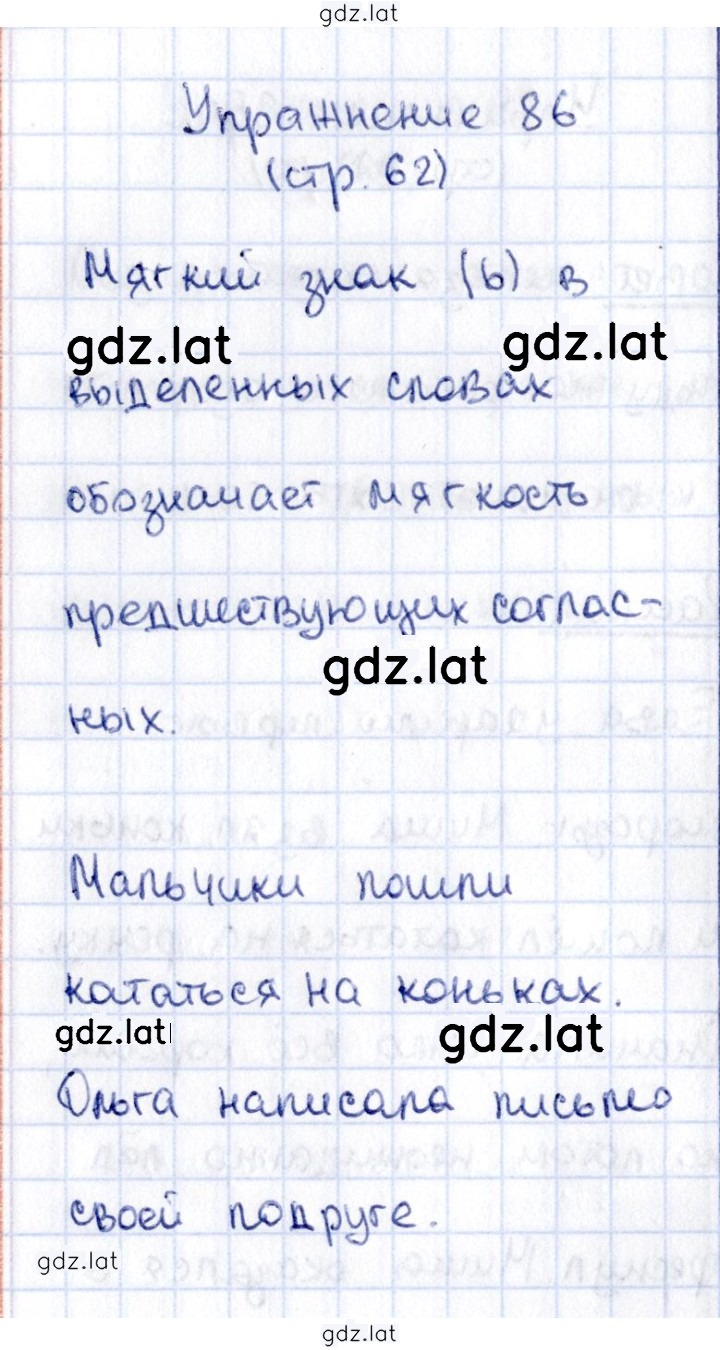 gdz.lat
Упражнение 86
(стр. 62)
Мягкий знак (ь) в
gdz.lat gdz.lat
выделенных словах
обозначает мягкость
предшествующих соглас-
gdz.lat
ных.
Мальчики пошли
кататься на коньках.
gdz.lat gdz.lat
Ольга написала письмо
своей подруге.
gdz.lat
gdz.lat